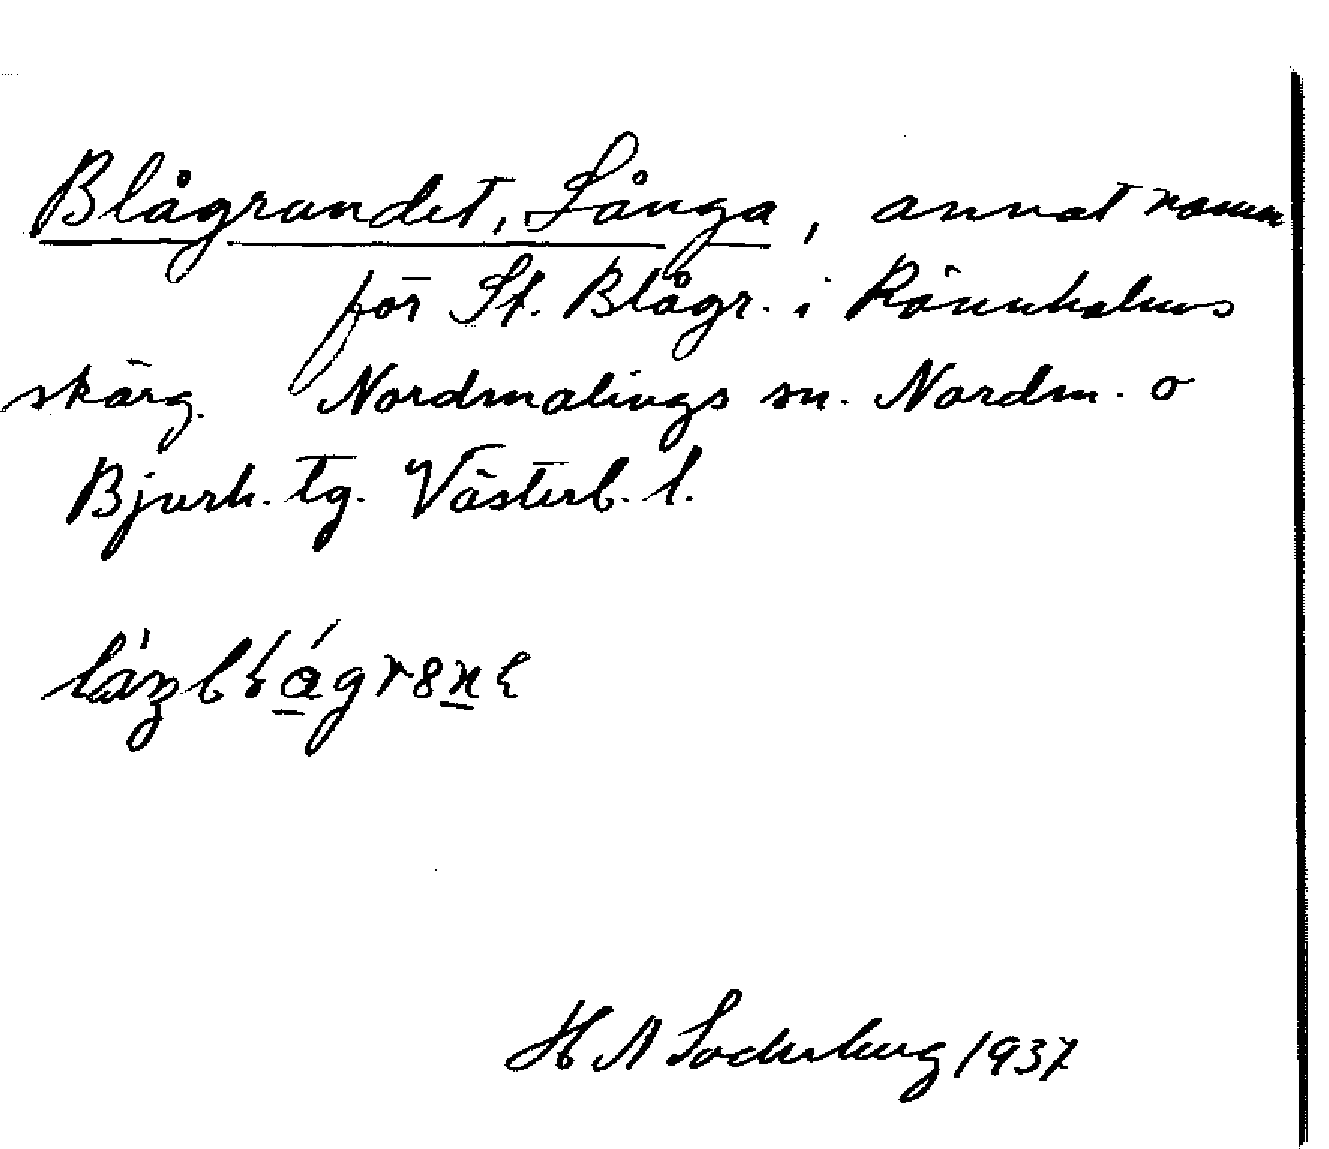 Blågrundet, Långa, annat namn
för St. Blågr. i Rönnholms
skärg. Nordmalings sn. Nordm. o
Bjurh. tg. Västerb. l.
H A Söderberg 1937